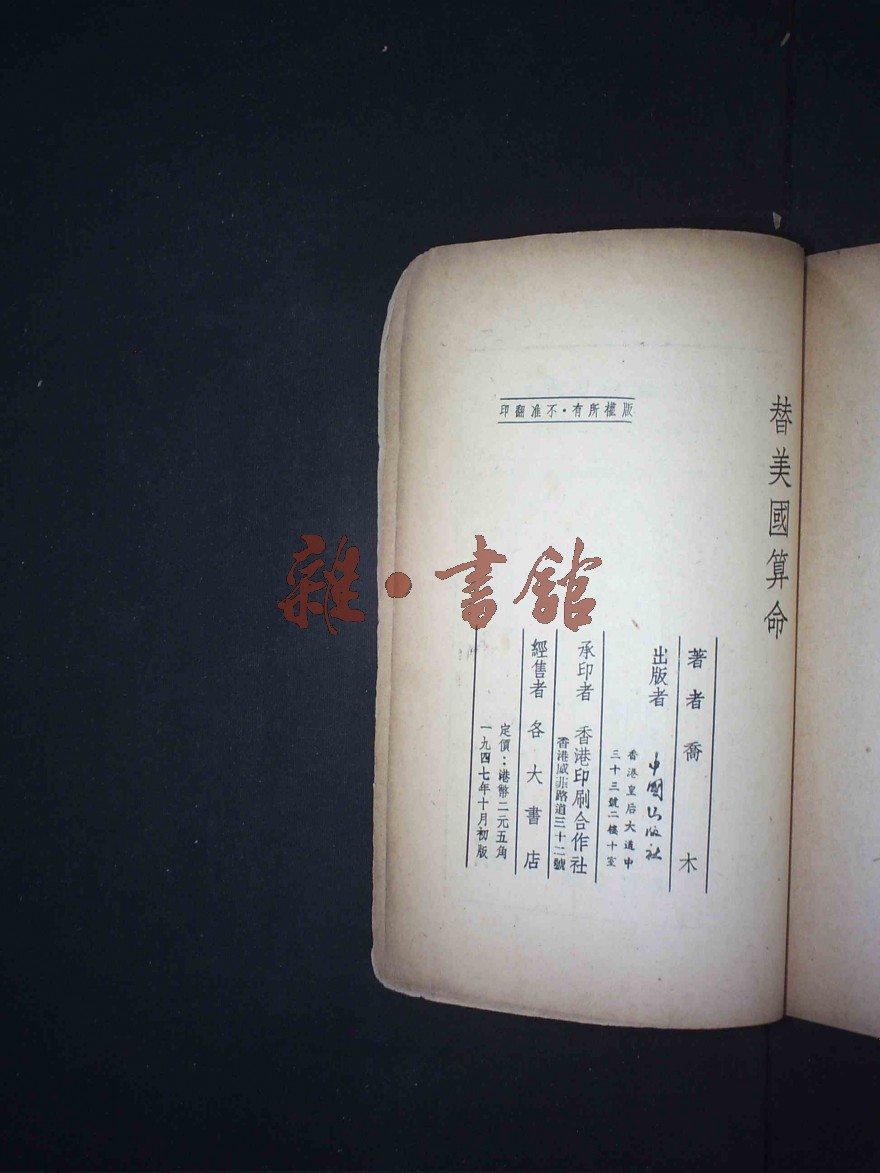 替美國算命
版權所有·不准翻印
著者 喬木
出版者 中國出版社
香港皇后大道中
三十三號二樓十室
承印者 香港印刷合作社
香港威菲路道三十二號
經售者 各大書店
定價：港幣二元五角
一九四七年十月初版
雜·書館